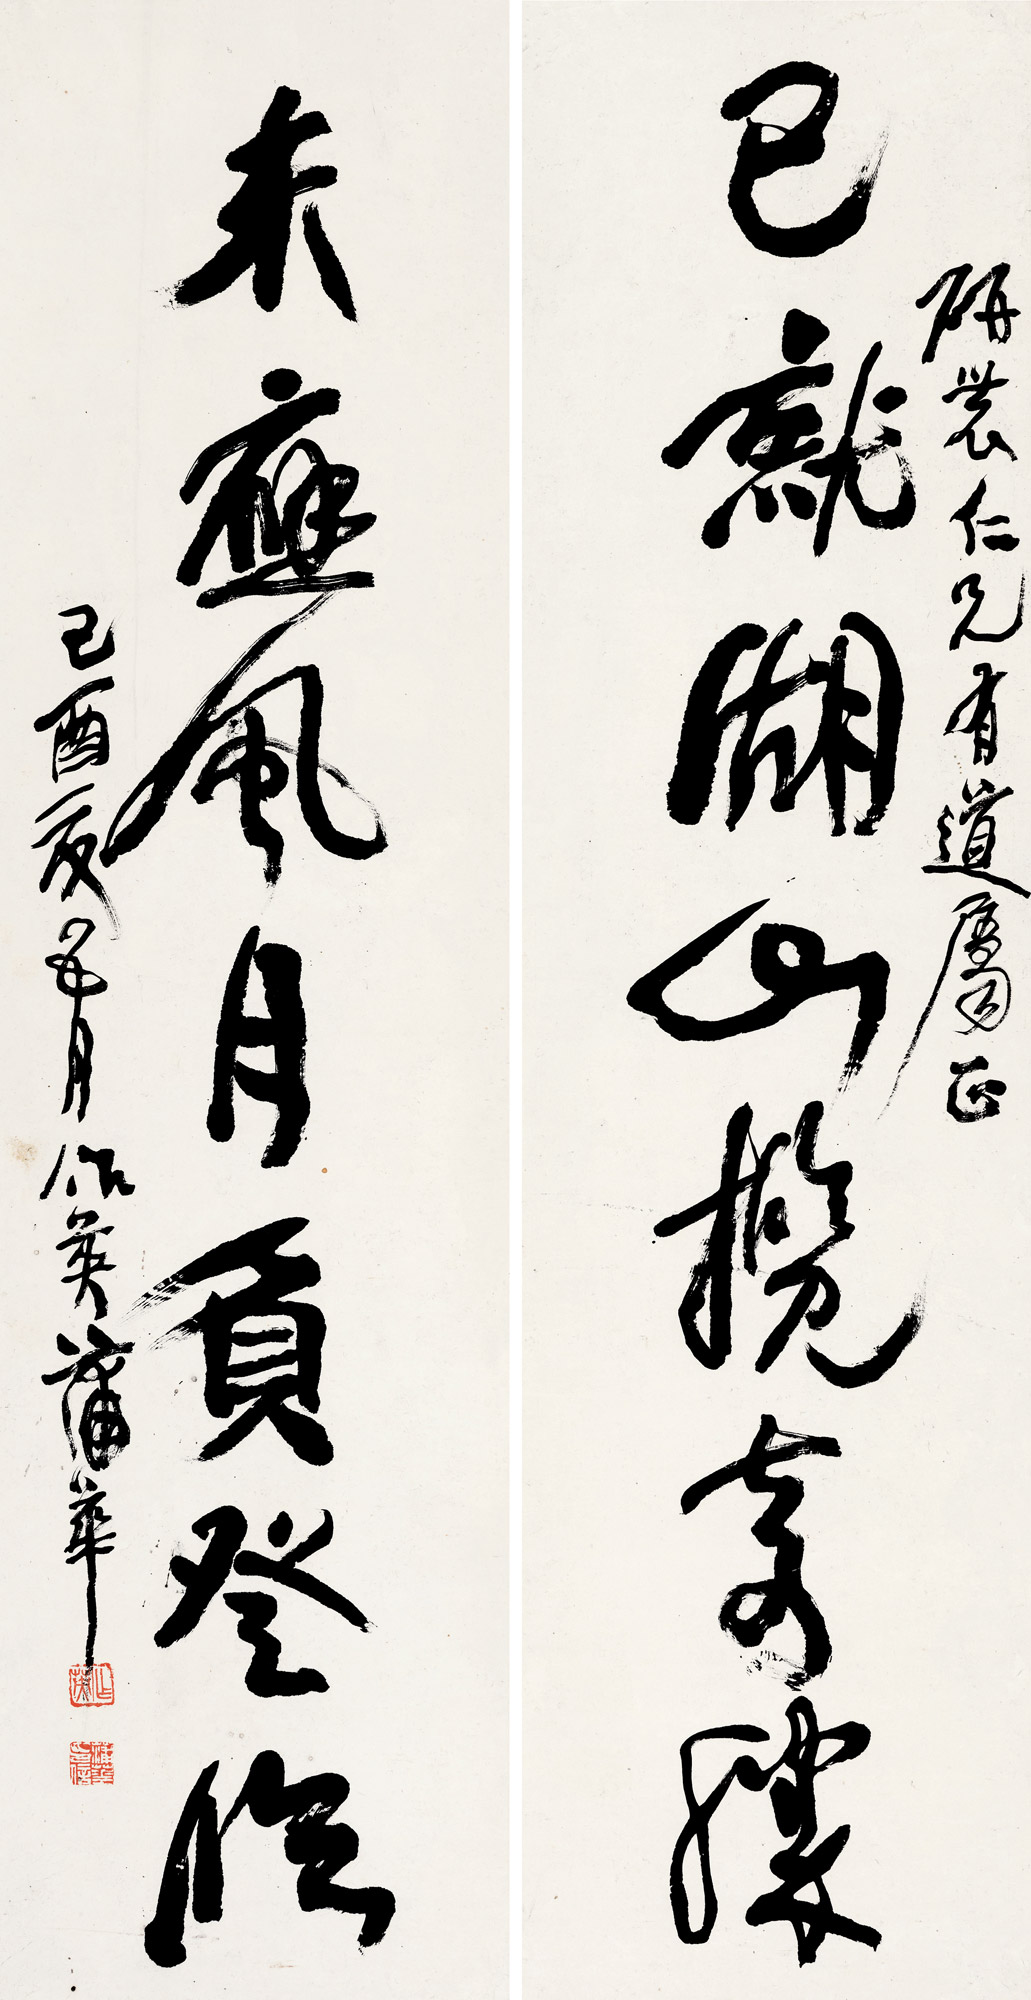 研農仁兄有道属正
已就湖山攬奇勝
未應風月負登臨
己酉夏五月作英蒲華